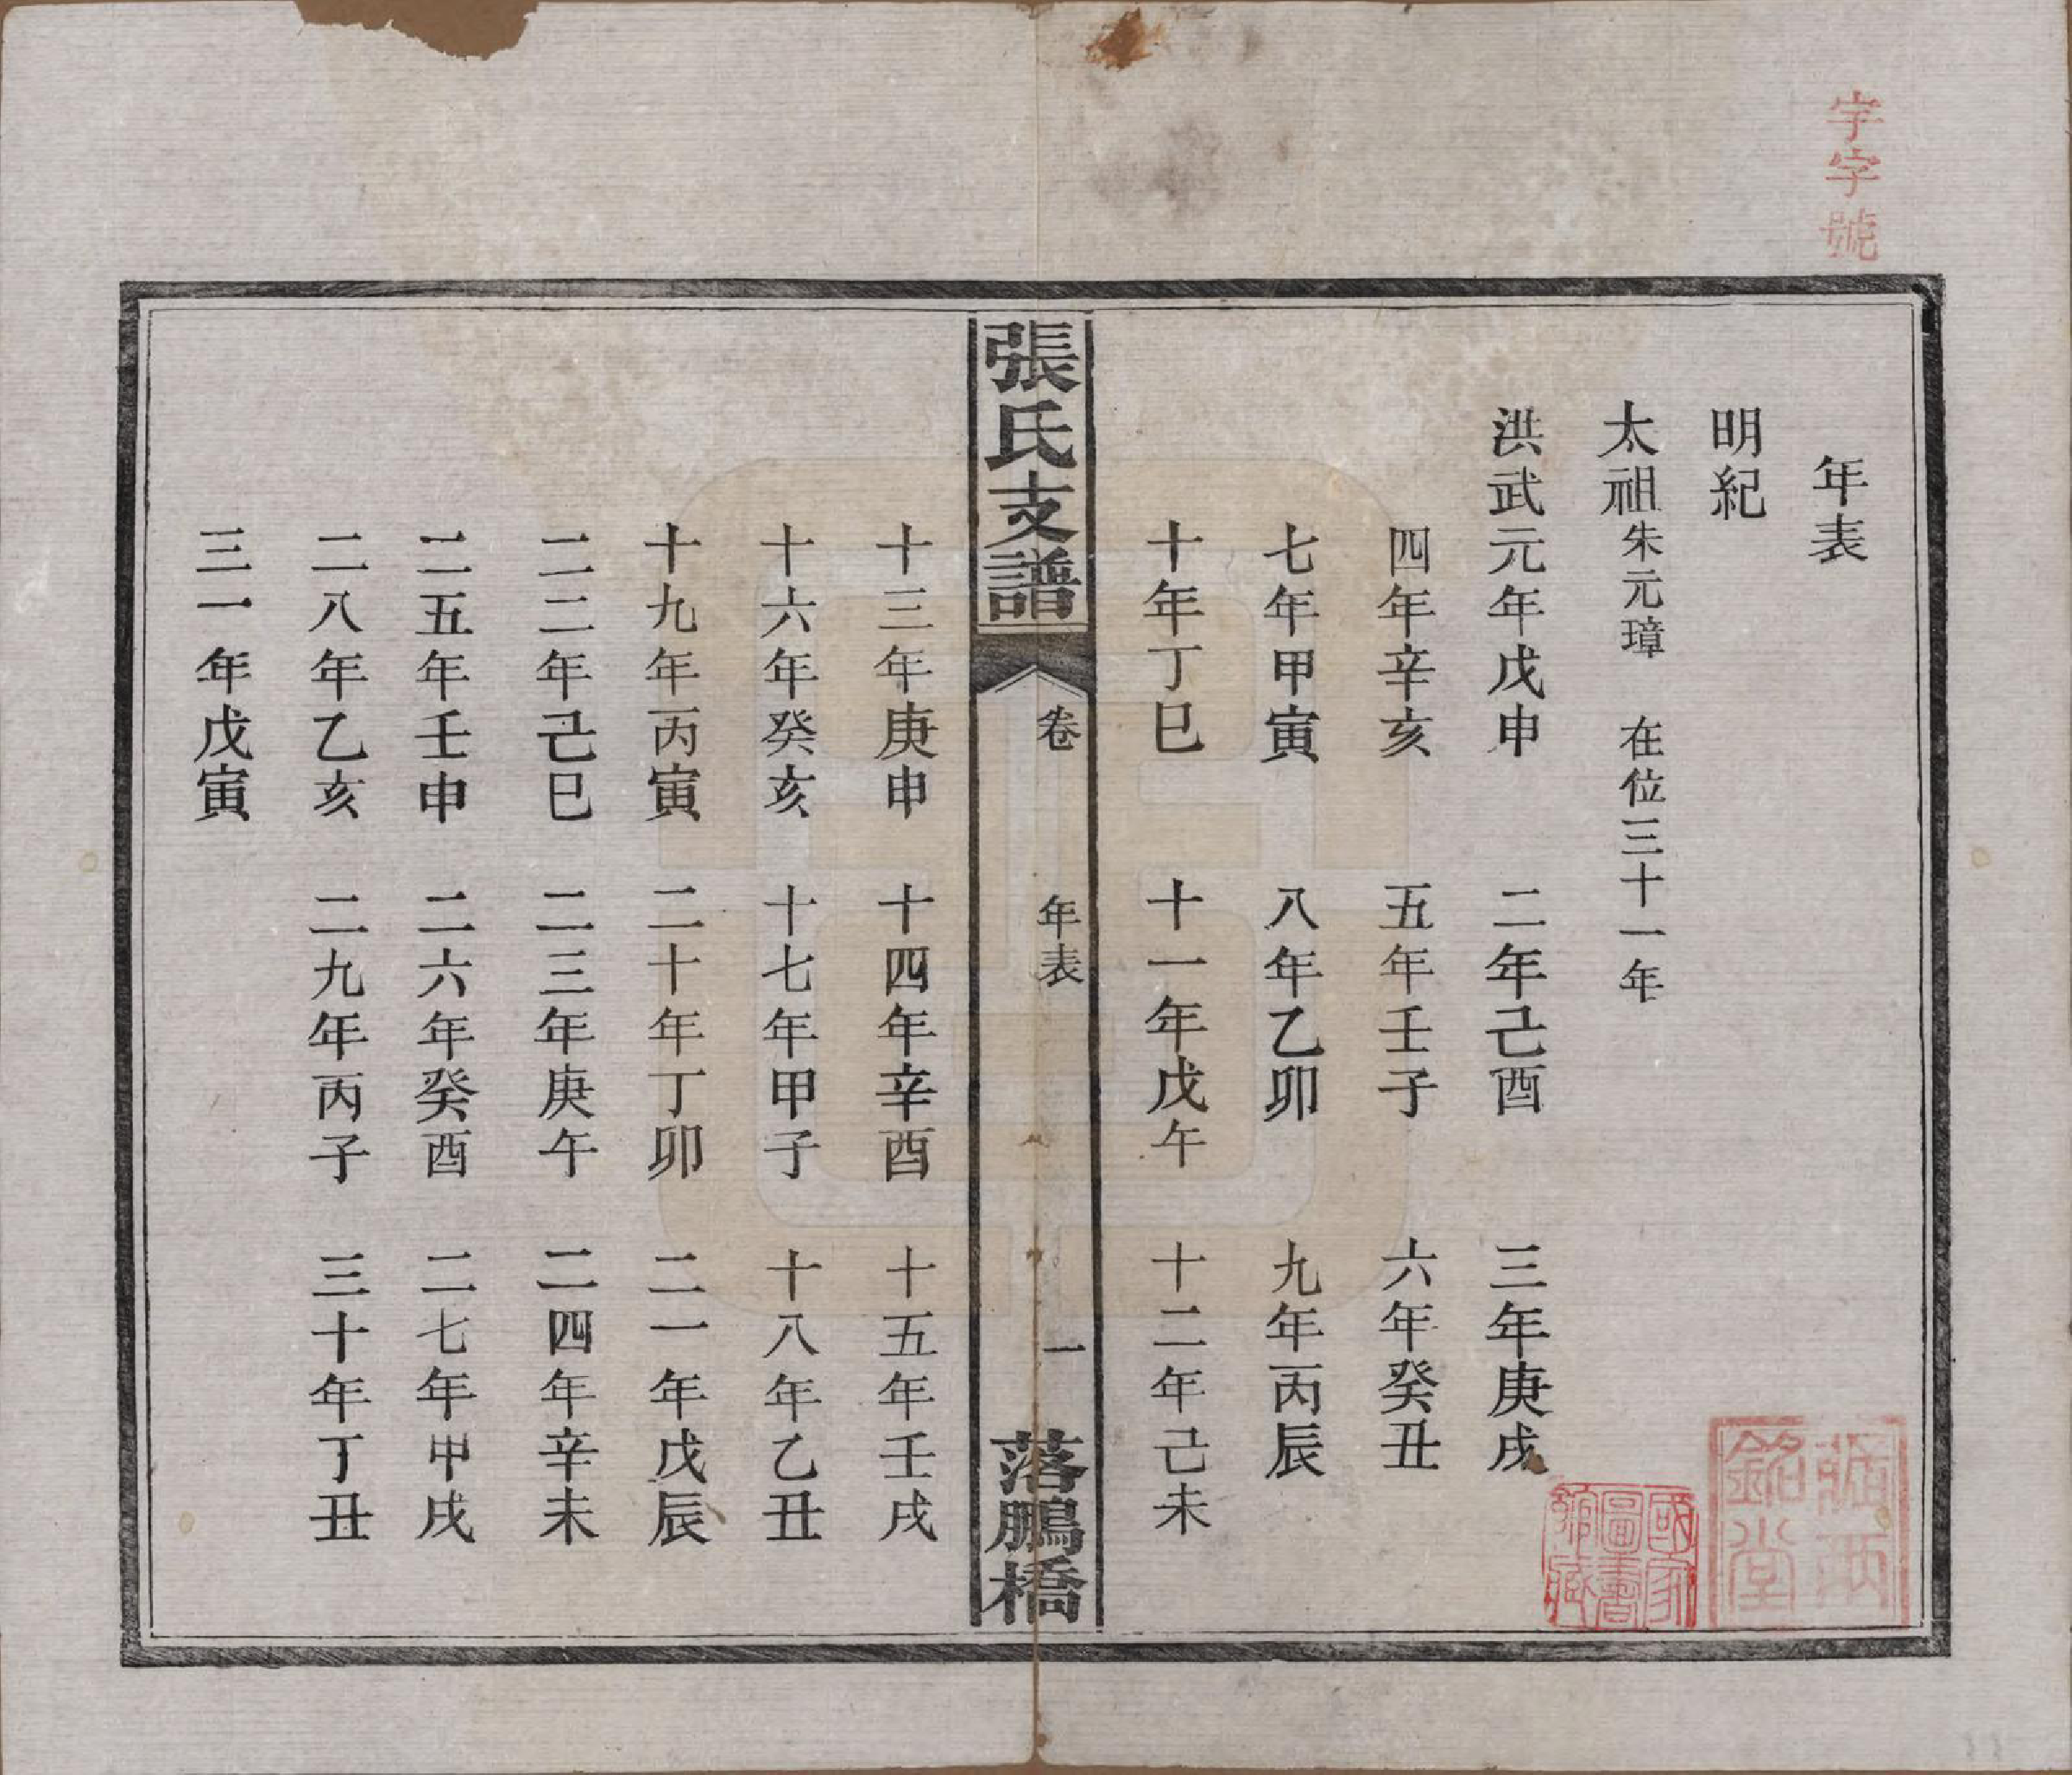 字字號
年表
明紀
太祖朱元璋 在位三十一年
洪武元年戊申 二年己酉 三年庚戌
四年辛亥 五年壬子 六年癸丑
七年甲寅 八年乙卯 九年丙辰
十年丁巳 十一年戊午 十二年己未
張氏支譜 卷 年表 一 落鵬橋
十三年庚申 十四年辛酉 十五年壬戌
十六年癸亥 十七年甲子 十八年乙丑
十九年丙寅 二十年丁卯 二一年戊辰
二二年己巳 二三年庚午 二四年辛未
二五年壬申 二六年癸酉 二七年甲戌
二八年乙亥 二九年丙子 三十年丁丑
三一年戊寅
國家
圖書
館藏
銘堂